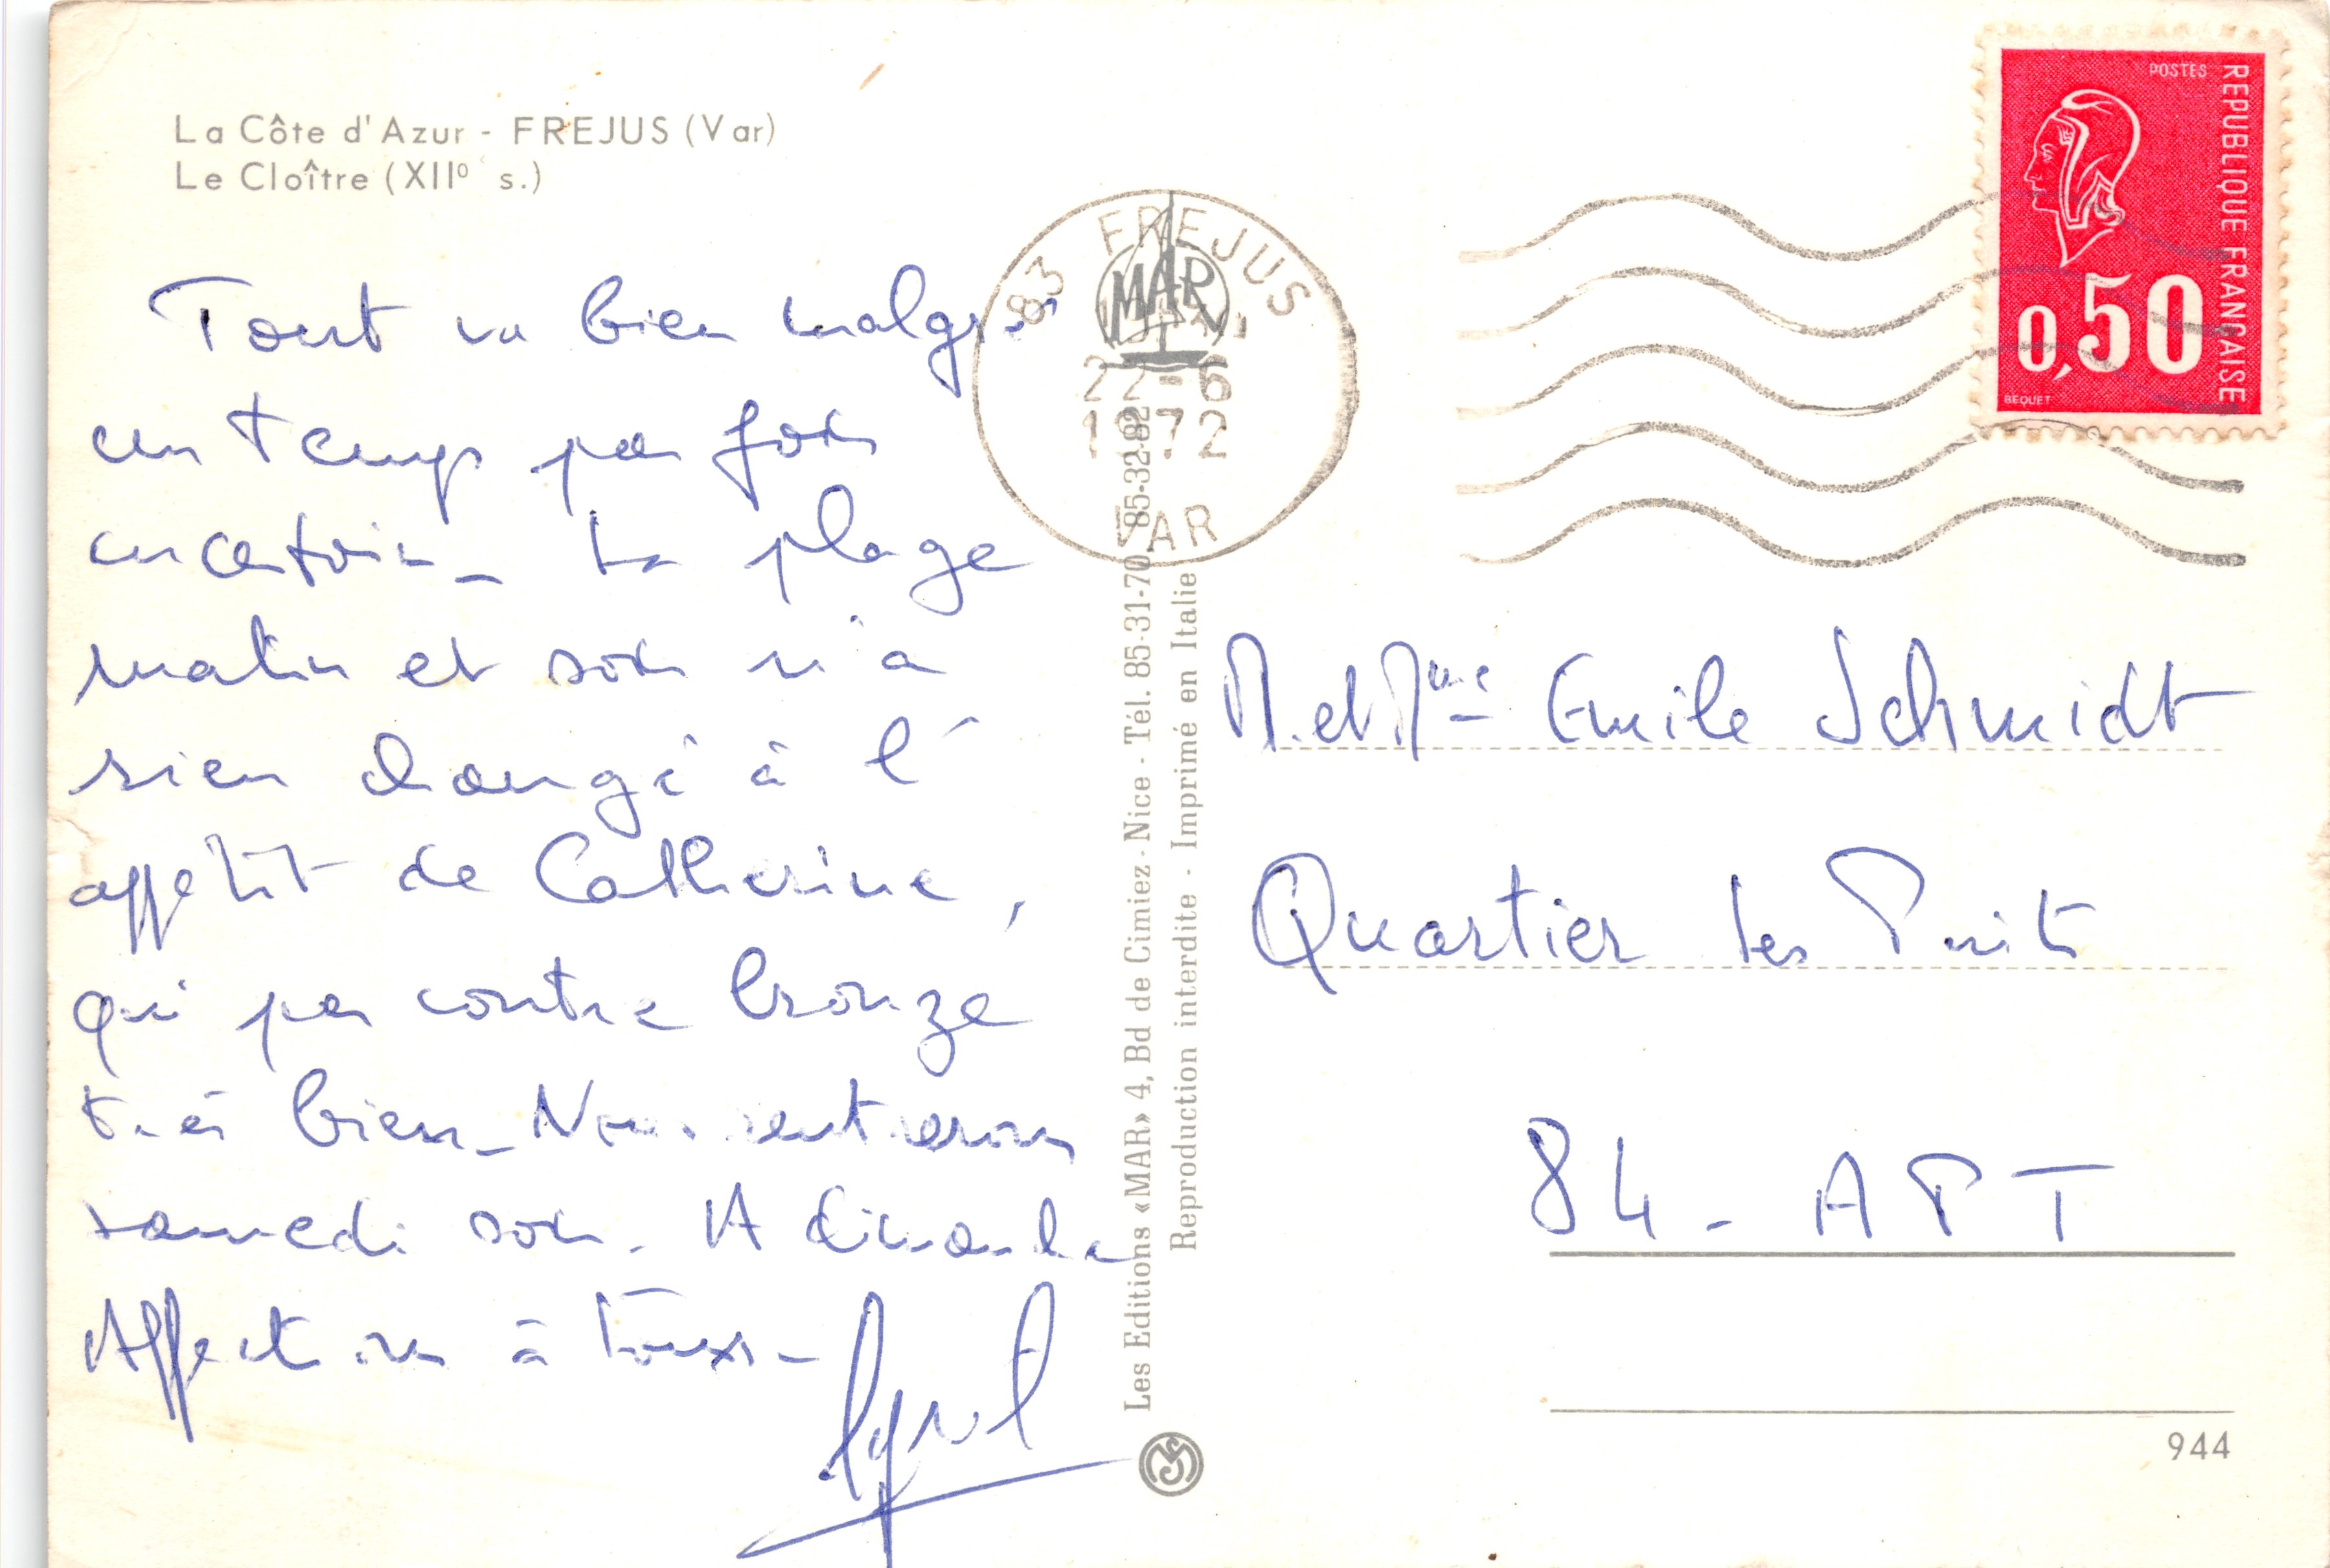 La Côte d'Azur - FREJUS (Var)
Le Cloître (XIIº s.)
Tout va bien malgré
un temps par fois
incertain_ La plage
matin et soir n'a
rien changé à l'
appétit de Catherine,
qui par contre bronze
très bien_Nous rentrerons
samedi soir. A dimanche
Affection à tous_
83 FREJUS
MAR
22-6
1972
VAR
Les Editions «MAR» 4, Bd de Cimiez-Nice - Tél. 85-31-70 85-32-82
Reproduction interdite - Imprimé en Italie
POSTES
REPUBLIQUE FRANCAISE
0,50
BEQUET
M. et Mme Emile Schmidt
Quartier les Puits
84 - APT
944